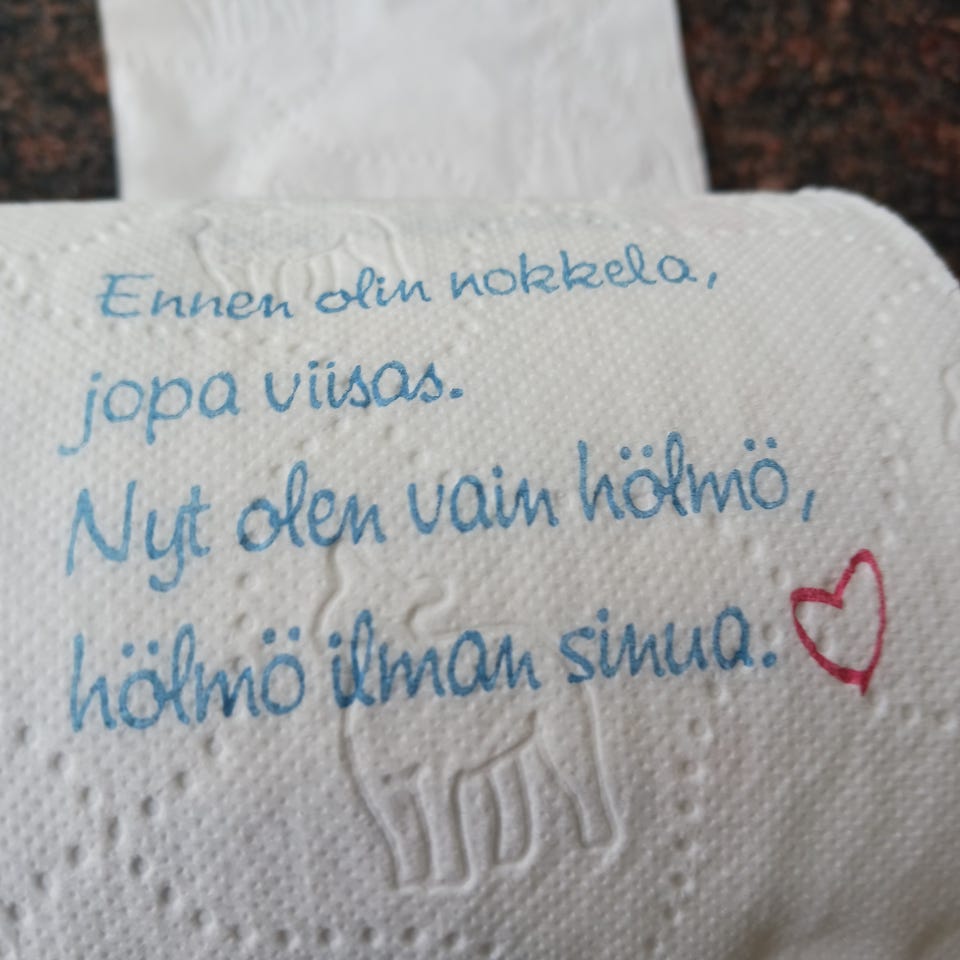 Ennen olin nokkela,
jopa viisas.
Nyt olen vain hölmö,
hölmö ilman sinua.